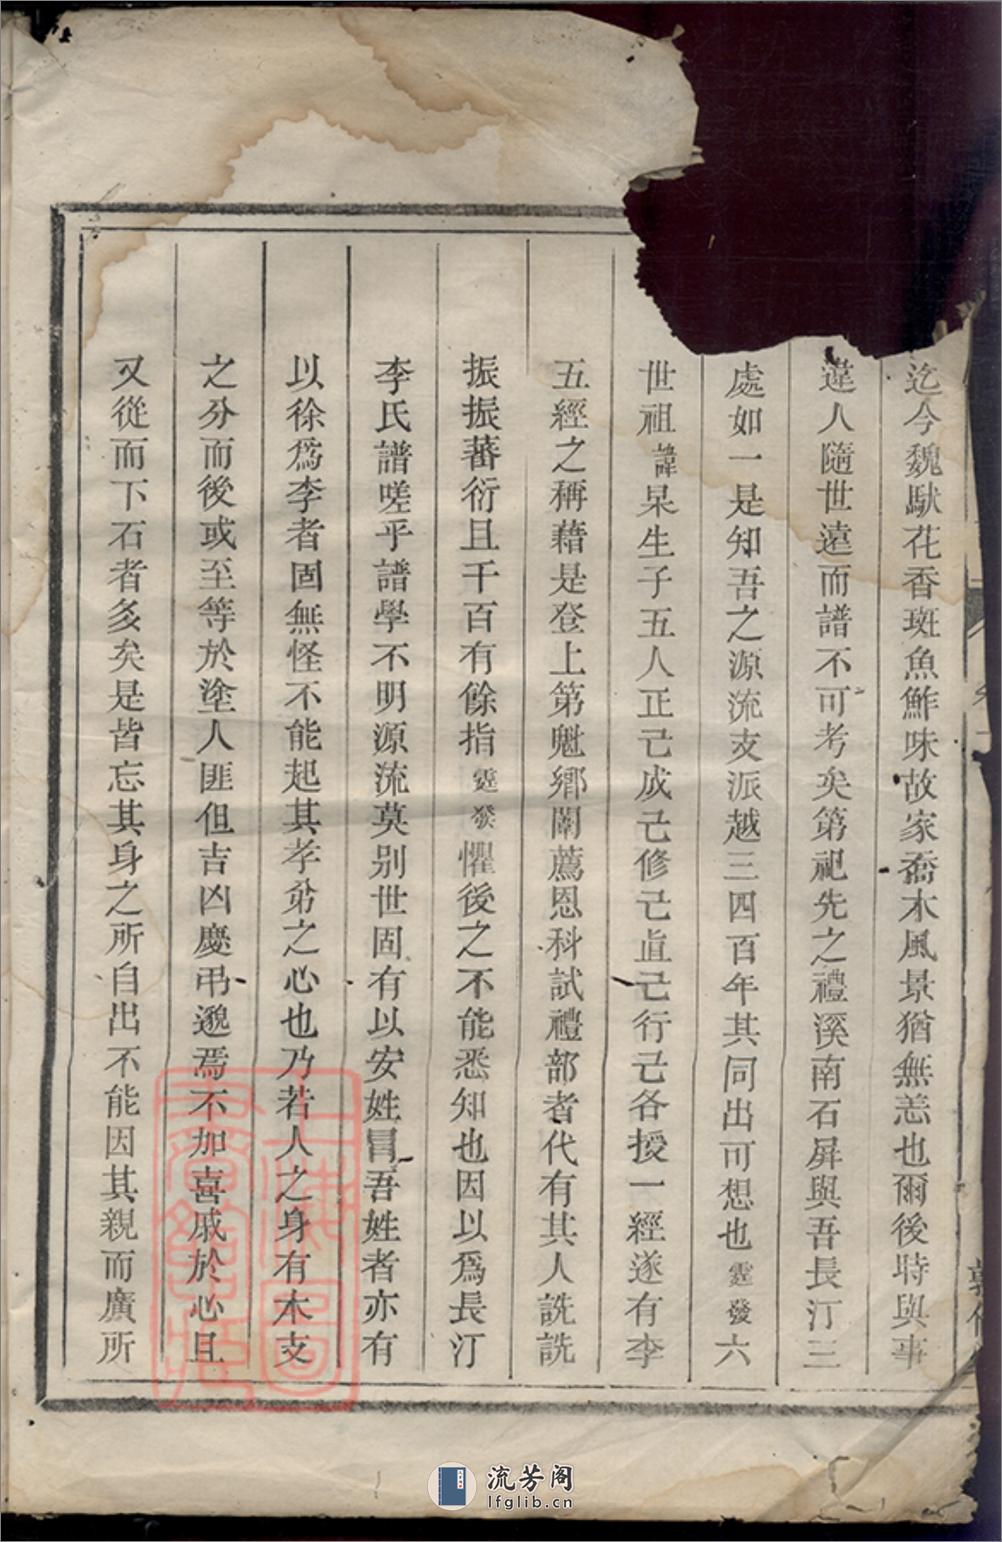 迄今魏馱花香斑魚鮓味故家喬木風景猶無恙也爾後時與事
違人隨世遠而譜不可考矣第祀先之禮溪南石屏與吾長汀三
處如一是知吾之源流支派越三四百年其同出可想也霆發六
世祖諱杲生子五人正己成己修己直己行己各授一經遂有李
五經之稱藉是登上第魁鄉闈薦恩科試禮部者代有其人詵詵
振振蕃衍且千百有餘指霆發懼後之不能悉知也因以爲長汀
李氏譜嗟乎譜學不明源流莫别世固有以安姓冒吾姓者亦有
以徐爲李者固無怪不能起其孝弟之心也乃若人之身有本支
之分而後或至等於塗人匪但吉凶慶弔邈焉不加喜戚於心且
又從而下石者多矣是皆忘其身之所自出不能因其親而廣所
流芳阁
lfglib.cn